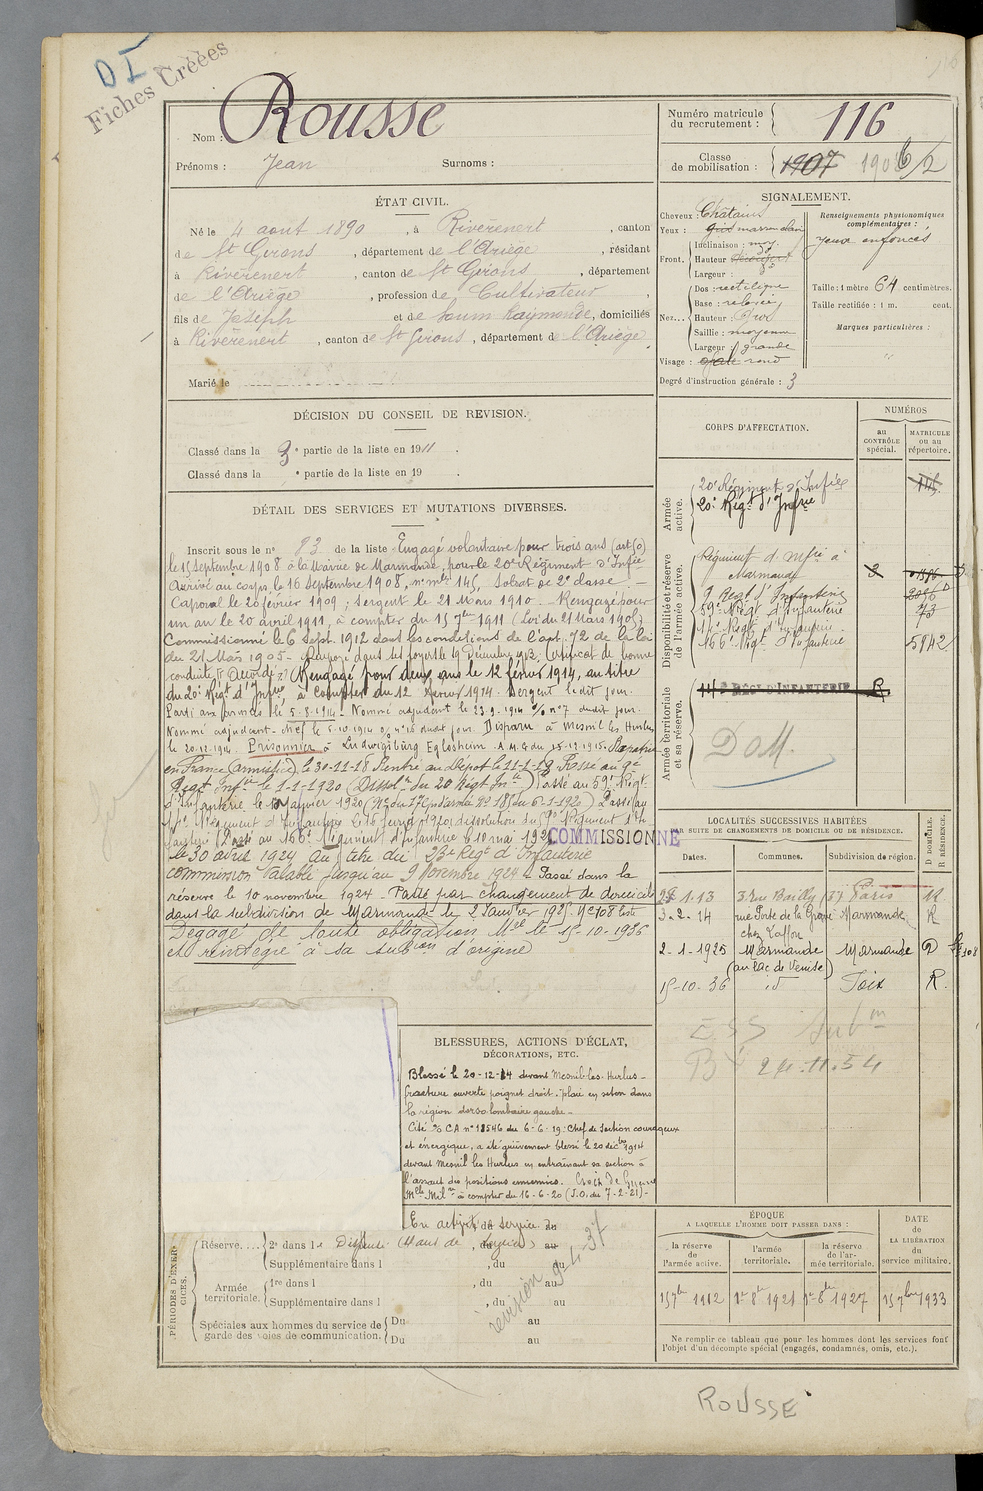 D I
Fiches Créées
Nom : Rousse
Prénoms : Jean Surnoms :
Numéro matricule du recrutement : 116
Classe de mobilisation : 1907 1906/2
ÉTAT CIVIL.
Né le 4 aout 1890, à Rivèrenert, canton
de St Girons, département de l'Ariège, résidant
à Rivèrenert, canton de St Girons, département
de l'Ariège, profession de Cultivateur,
fils de Joseph et de Soum Raymonde, domiciliés
à Rivèrenert, canton de St Girons, département de l'Ariège
Marié le
SIGNALEMENT.
Cheveux : Châtains
Yeux : gris marron clair
Front. Inclinaison : moy.
Hauteur
Largeur :
Nez... Dos : rectiligne
Base : relevée
Hauteur : Gros
Saillie : moyenne
Largeur : grande
Visage : ovale rond
Degré d'instruction générale : 3
Renseignements physionomiques complémentaires :
yeux enfoncés
Taille : 1 mètre 64 centimètres.
Taille rectifiée : 1 m. cent.
Marques particulières :
"
DÉCISION DU CONSEIL DE REVISION.
Classé dans la 3e partie de la liste en 1911.
Classé dans la e partie de la liste en 19 .
DÉTAIL DES SERVICES ET MUTATIONS DIVERSES.
Inscrit sous le n° 83 de la liste Engagé volontaire pour trois ans (art 50)
le 15 Septembre 1908 à la Mairie de Marmande, pour le 20e Régiment d'Infie
Arrivé au corps le 16 Septembre 1908, n° mle 145, Soldat de 2e classe. —
Caporal le 20 février 1909 ; Sergent le 21 Mars 1910. Rengagé pour
un an le 20 avril 1911, à compter du 15 7bre 1911 (Loi du 21 Mars 1905)
Commissionné le 6 Sept. 1912 dans les conditions de l'art. 72 de la loi
du 21 Mars 1905 - Renvoyé dans ses foyers le 19 Décembre 1912. Certificat de bonne
conduite "Accordé". Rengagé pour deux ans le 12 février 1914, au titre
du 20e Régt d'Infie à compter du 12 février 1914. Sergent ledit jour.
Parti aux armées le 5.8.1914 - Nommé adjudant le 23.9.1914 % n° 7 dudit jour.
Nommé adjudant-chef le 5.10.1914 % n° 16 dudit jour. Disparu à Mesnil les Hurlus
le 20.12.1914. Prisonnier à Ludwigsburg Eglosheim. A.M.G du 15-12-1915. Rapatrié
en France (armistice), le 30-11-18 Rentré au Dépôt le 21-1-19 Passé au 9e
Régt Infie le 1-1-1920 (Dissolon du 20 Régt Infie) Passé au 59e Régt
d'Infanterie le Janvier 1920 (N° du 17e Cps d'armée N° 18 du 6-1-1920) Passé au
14e Régiment d'Infanterie le 16 février 1920, dissolution du 9e Régiment d'In
fanterie Passé au 166e Régiment d'Infanterie le 10 mai 192 COMMISSIONNE
le 30 avril 1924 au titre du 23e Régt d'Infanterie
commission valable jusqu'au 9 Novembre 1924. Passé dans la
réserve le 10 novembre 1924. Passé par changement de domicile
dans la subdivision de Marmande le 2 Janvier 1925. N° 108 liste
Dégagé de toute obligation Mre le 15-10-1936
et réintégré à sa subon d'origine
CORPS D'AFFECTATION.
NUMÉROS
au CONTRÔLE spécial.
MATRICULE ou au répertoire.
Armée active.
20e Régiment d'Infie 145
20e Régt d'Infie
Disponibilité et réserve de l'armée active.
Régiment d'Infie à Marmande 2
9 Régt d'Infanterie
59e Régt d'Infanterie 73
14e Régt d'Infanterie
166e Régt d'Infanterie 5842
Armée territoriale et sa réserve.
RÉGt D'INFANTERIE R
DOM.
LOCALITÉS SUCCESSIVES HABITÉES
PAR SUITE DE CHANGEMENTS DE DOMICILE OU DE RÉSIDENCE.
Dates. Communes. Subdivision de région. D DOMICILE. R RÉSIDENCE.
28.1.13 3 rue Bailly (3e) Paris R
3-2-14 rue Porte de la Grope chez Laffon Marmande R
2-1-1925 Marmande (au lac de Venise) Marmande D
15-10-36 id Foix R.
ESS Subon
BY 24.11.54
BLESSURES, ACTIONS D'ÉCLAT,
DÉCORATIONS, ETC.
Blessé le 20-12-14 devant Mesnil-les-Hurlus -
fracture ouverte poignet droit. plaie en seton dans
la région dorso lombaire gauche -
Cité % CA n° 18546 du 6-6-19 : Chef de Section courageux
et énergique, a été grièvement blessé le 20 décbre 1914
devant Mesnil les Hurlus en entraînant sa section à
l'assaut des positions ennemies. Croix de Guerre
Mlle Milre à compter du 16-6-20 (J.O. du 7-2-21) -
PÉRIODES D'EXERCICES.
En activité de service du
Réserve.... 2e dans le Dispensé , du au
Supplémentaire dans l , du au
Armée territoriale. 1re dans l , du au
Supplémentaire dans l , du au
Spéciales aux hommes du service de garde des voies de communication. Du au
Du au
revision 9-4-37
ÉPOQUE
A LAQUELLE L'HOMME DOIT PASSER DANS :
la réserve de l'armée active. l'armée territoriale. la réserve de l'armée territoriale.
DATE DE LA LIBÉRATION du service militaire.
15 7bre 1912 1er 8bre 1921 1er 8bre 1927 15 7bre 1933
Ne remplir ce tableau que pour les hommes dont les services font
l'objet d'un décompte spécial (engagés, condamnés, omis, etc.).
ROUSSE